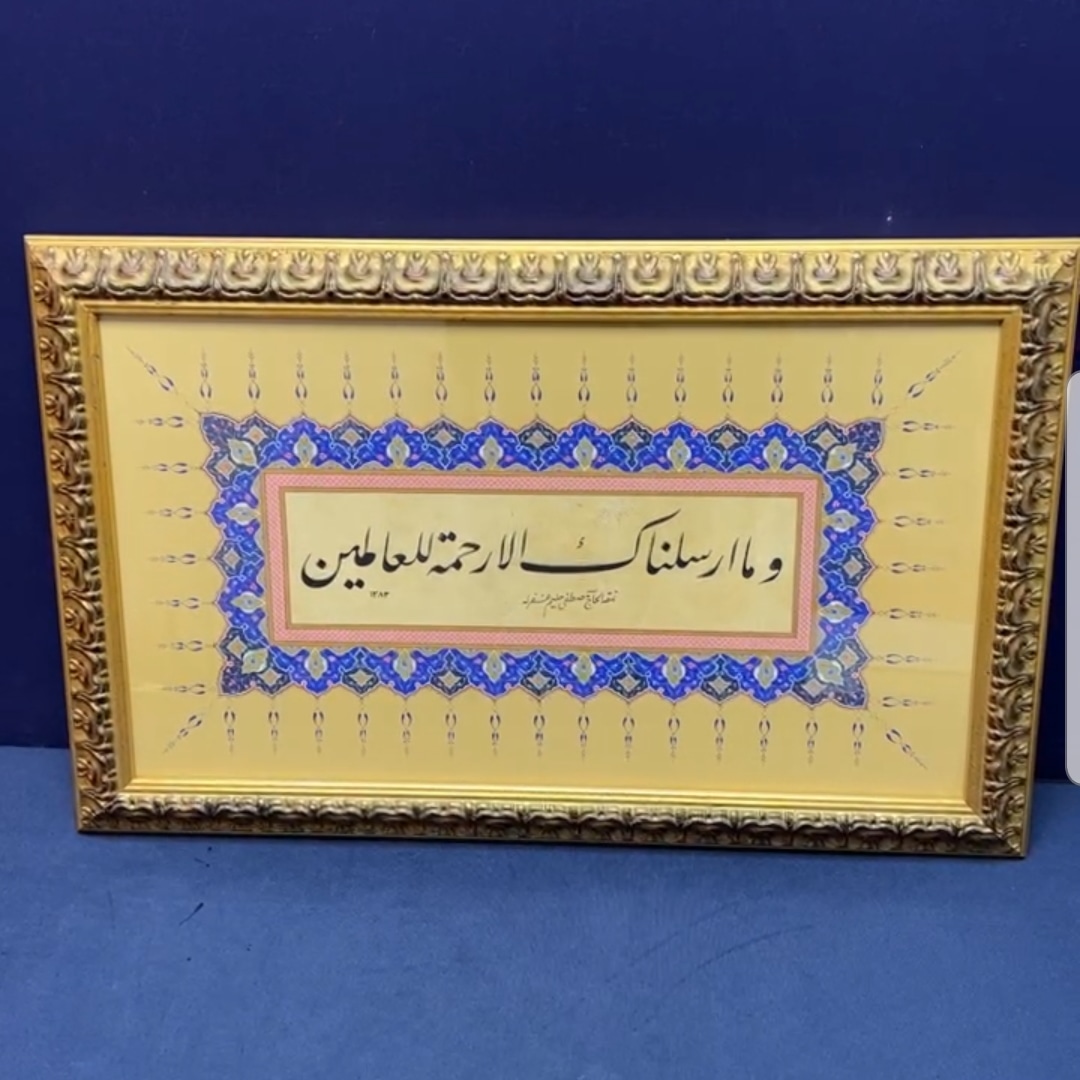 وما ارسلناك الا رحمة للعالمين
نمقه الحاج مصطفى حليم غفر له
١٣٨٣